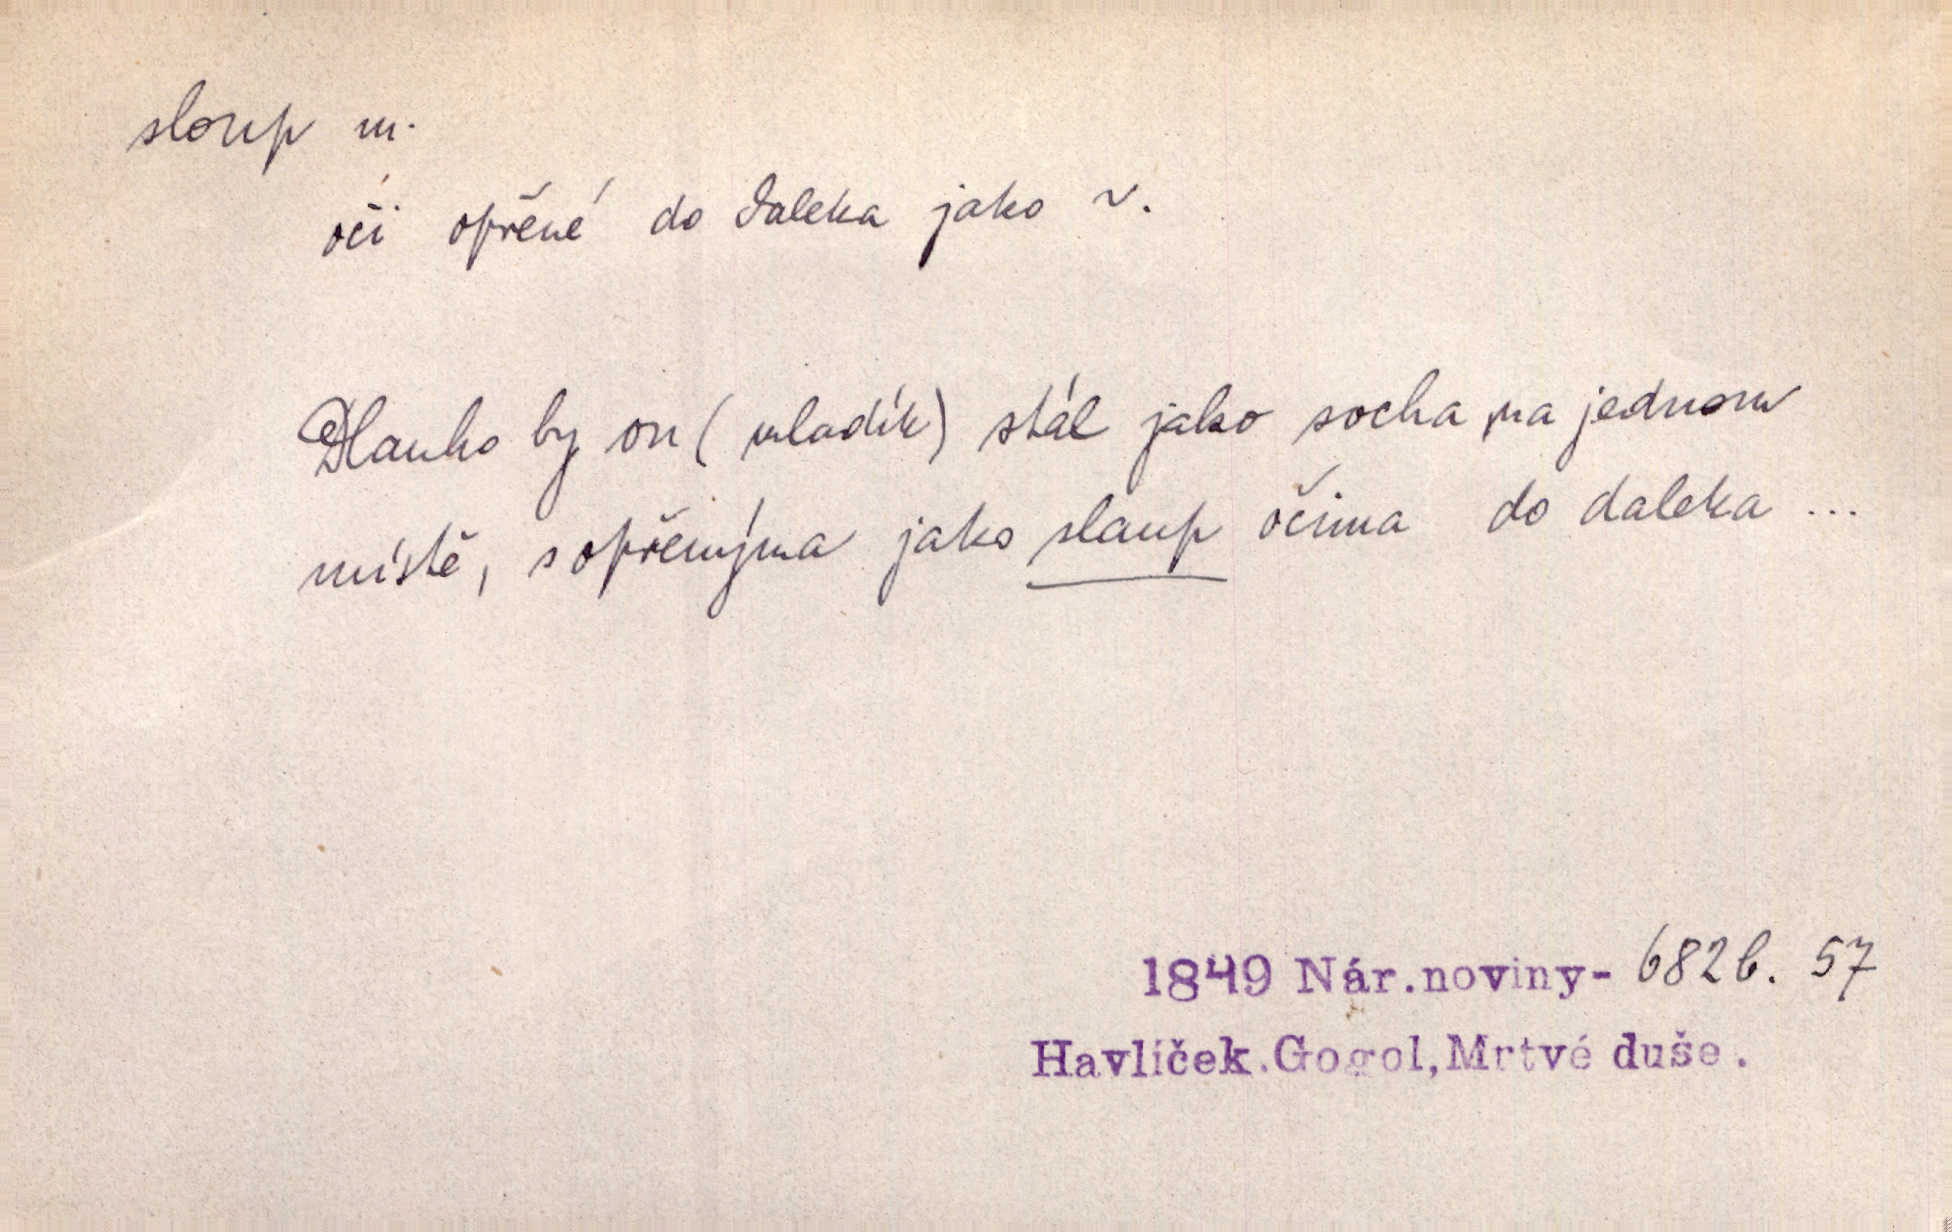 sloup m.
oči opřené do daleka jako ~.
Dlauho by on (mladík) stál jako socha na jednom
místě, s opřenýma jako slaup očima do daleka ...
1849 Nár.noviny- 682b. 57
Havlíček.Gogol,Mrtvé duše.